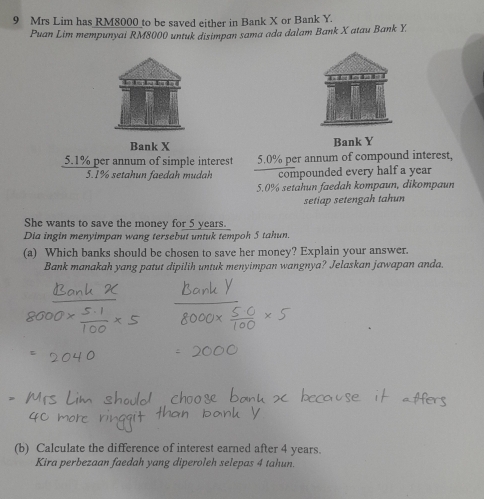 9 Mrs Lim has RM8000 to be saved either in Bank X or Bank Y.
Puan Lim mempunyai RM8000 untuk disimpan sama ada dalam Bank X atau Bank Y.
Bank X
5.1% per annum of simple interest
5.1% setahun faedah mudah
Bank Y
5.0% per annum of compound interest,
compounded every half a year
5.0% setahun faedah kompaun, dikompaun
setiap setengah tahun
She wants to save the money for 5 years.
Dia ingin menyimpan wang tersebut untuk tempoh 5 tahun.
(a) Which banks should be chosen to save her money? Explain your answer.
Bank manakah yang patut dipilih untuk menyimpan wangnya? Jelaskan jawapan anda.
Bank x
8000 × 5.1/100 × 5
= 2040
Bank Y
8000 × 5.0/100 × 5
= 2000
= Mrs Lim should choose bank x because it offers
40 more ringgit than bank Y
(b) Calculate the difference of interest earned after 4 years.
Kira perbezaan faedah yang diperoleh selepas 4 tahun.